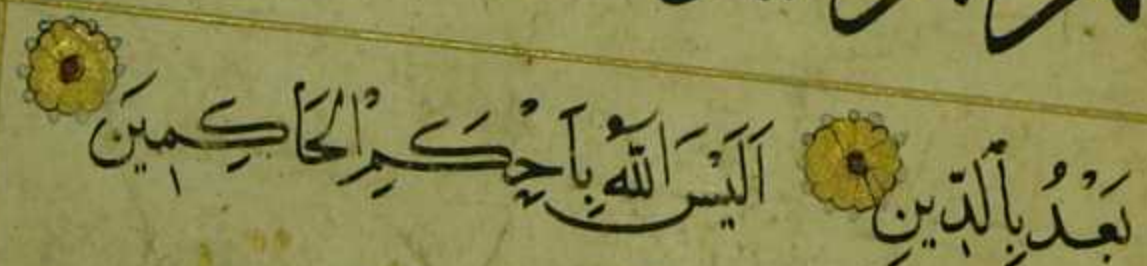 بَعْدُ بِالدِّينِ اَلَيْسَ اللّٰهُ بِاَحْكَمِ الْحَاكِمِينَ